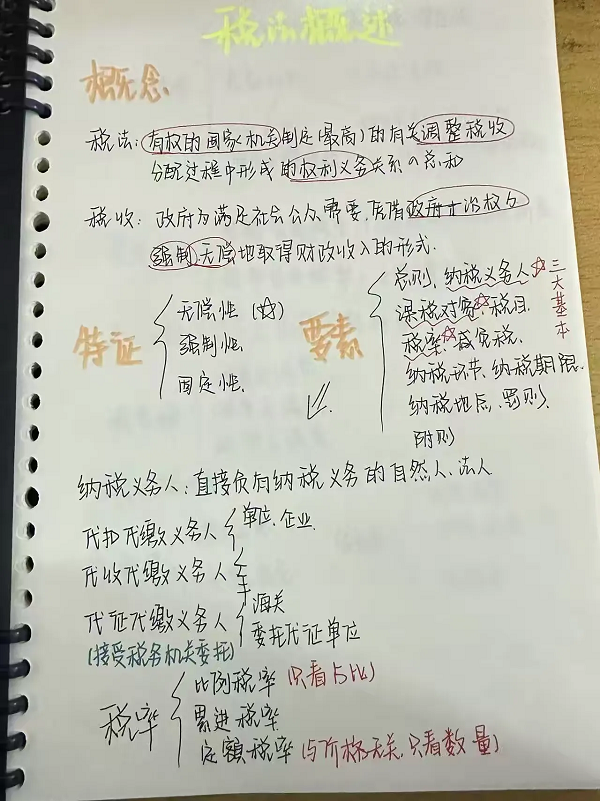 税法概述
概念
税法：有权的国家机关制定(最高)的有关调整税收
分配过程中形成的权利义务关系的总和
税收：政府为满足社会公众需要,凭借政府政治权力
强制无偿地取得财政收入的形式.
特征
无偿性(☆)
强制性.
固定性.
要素
总则、纳税义务人☆
课税对象☆税目.
税率☆减免税.
纳税环节、纳税期限.
纳税地点、罚则、
附则
三大基本
纳税义务人：直接负有纳税义务的自然人、法人
代扣代缴义务人 单位、企业.
代收代缴义务人
代征代缴义务人 海关
委托代征单位
(接受税务机关委托)
税率
比例税率(只看占比)
累进税率
定额税率(与价格无关.只看数量)